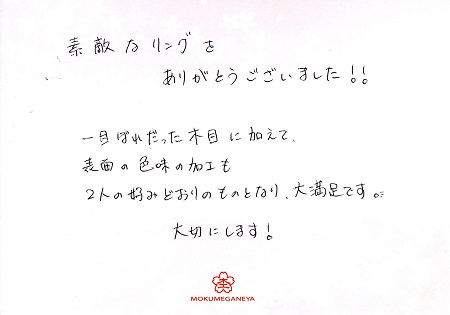 素敵なリングを
ありがとうございました!!
一目ぼれだった木目に加えて、
表面の色味の加工も
2人の好みどおりのものとなり、大満足です。
大切にします!
MOKUMEGANEYA